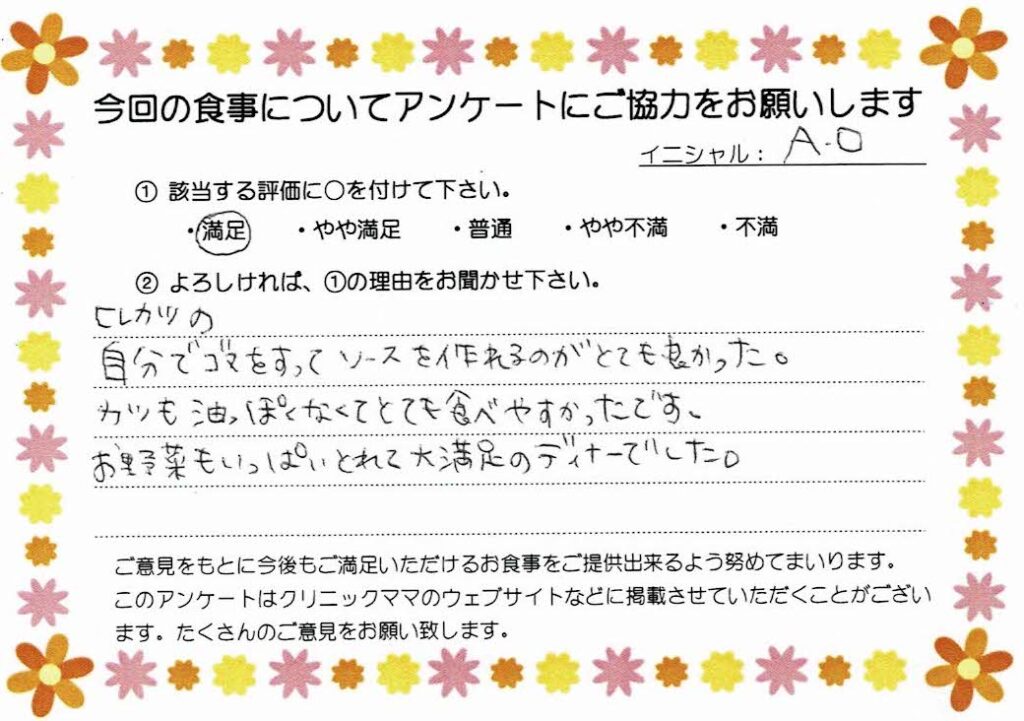 今回の食事についてアンケートにご協力をお願いします
イニシャル： A.O
① 該当する評価に○を付けて下さい。
・満足 ・やや満足 ・普通 ・やや不満 ・不満
② よろしければ、①の理由をお聞かせ下さい。
ヒレカツの
自分でゴマをすってソースを作れるのがとても良かった。
カツも油っぽくなくてとても食べやすかったです。
お野菜もいっぱいとれて大満足のディナーでした。
ご意見をもとに今後もご満足いただけるお食事をご提供出来るよう努めてまいります。
このアンケートはクリニックママのウェブサイトなどに掲載させていただくことがござい
ます。たくさんのご意見をお願い致します。